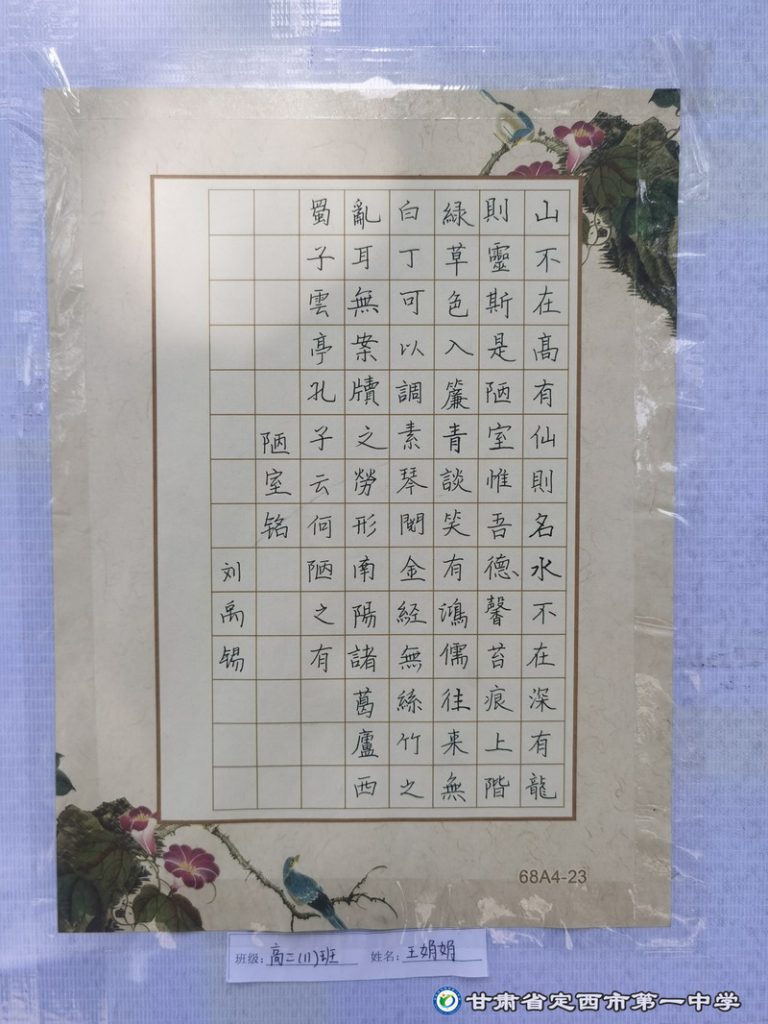 山不在高有仙則名水不在深有龍
則靈斯是陋室惟吾德馨苔痕上階
綠草色入簾青談笑有鴻儒往来無
白丁可以調素琴閱金経無絲竹之
亂耳無案牘之勞形南陽諸葛廬西
蜀子雲亭孔子云何陋之有
陋室铭
刘禹锡
68A4-23
班级：高二(11)班 姓名：王娟娟
甘肃省定西市第一中学